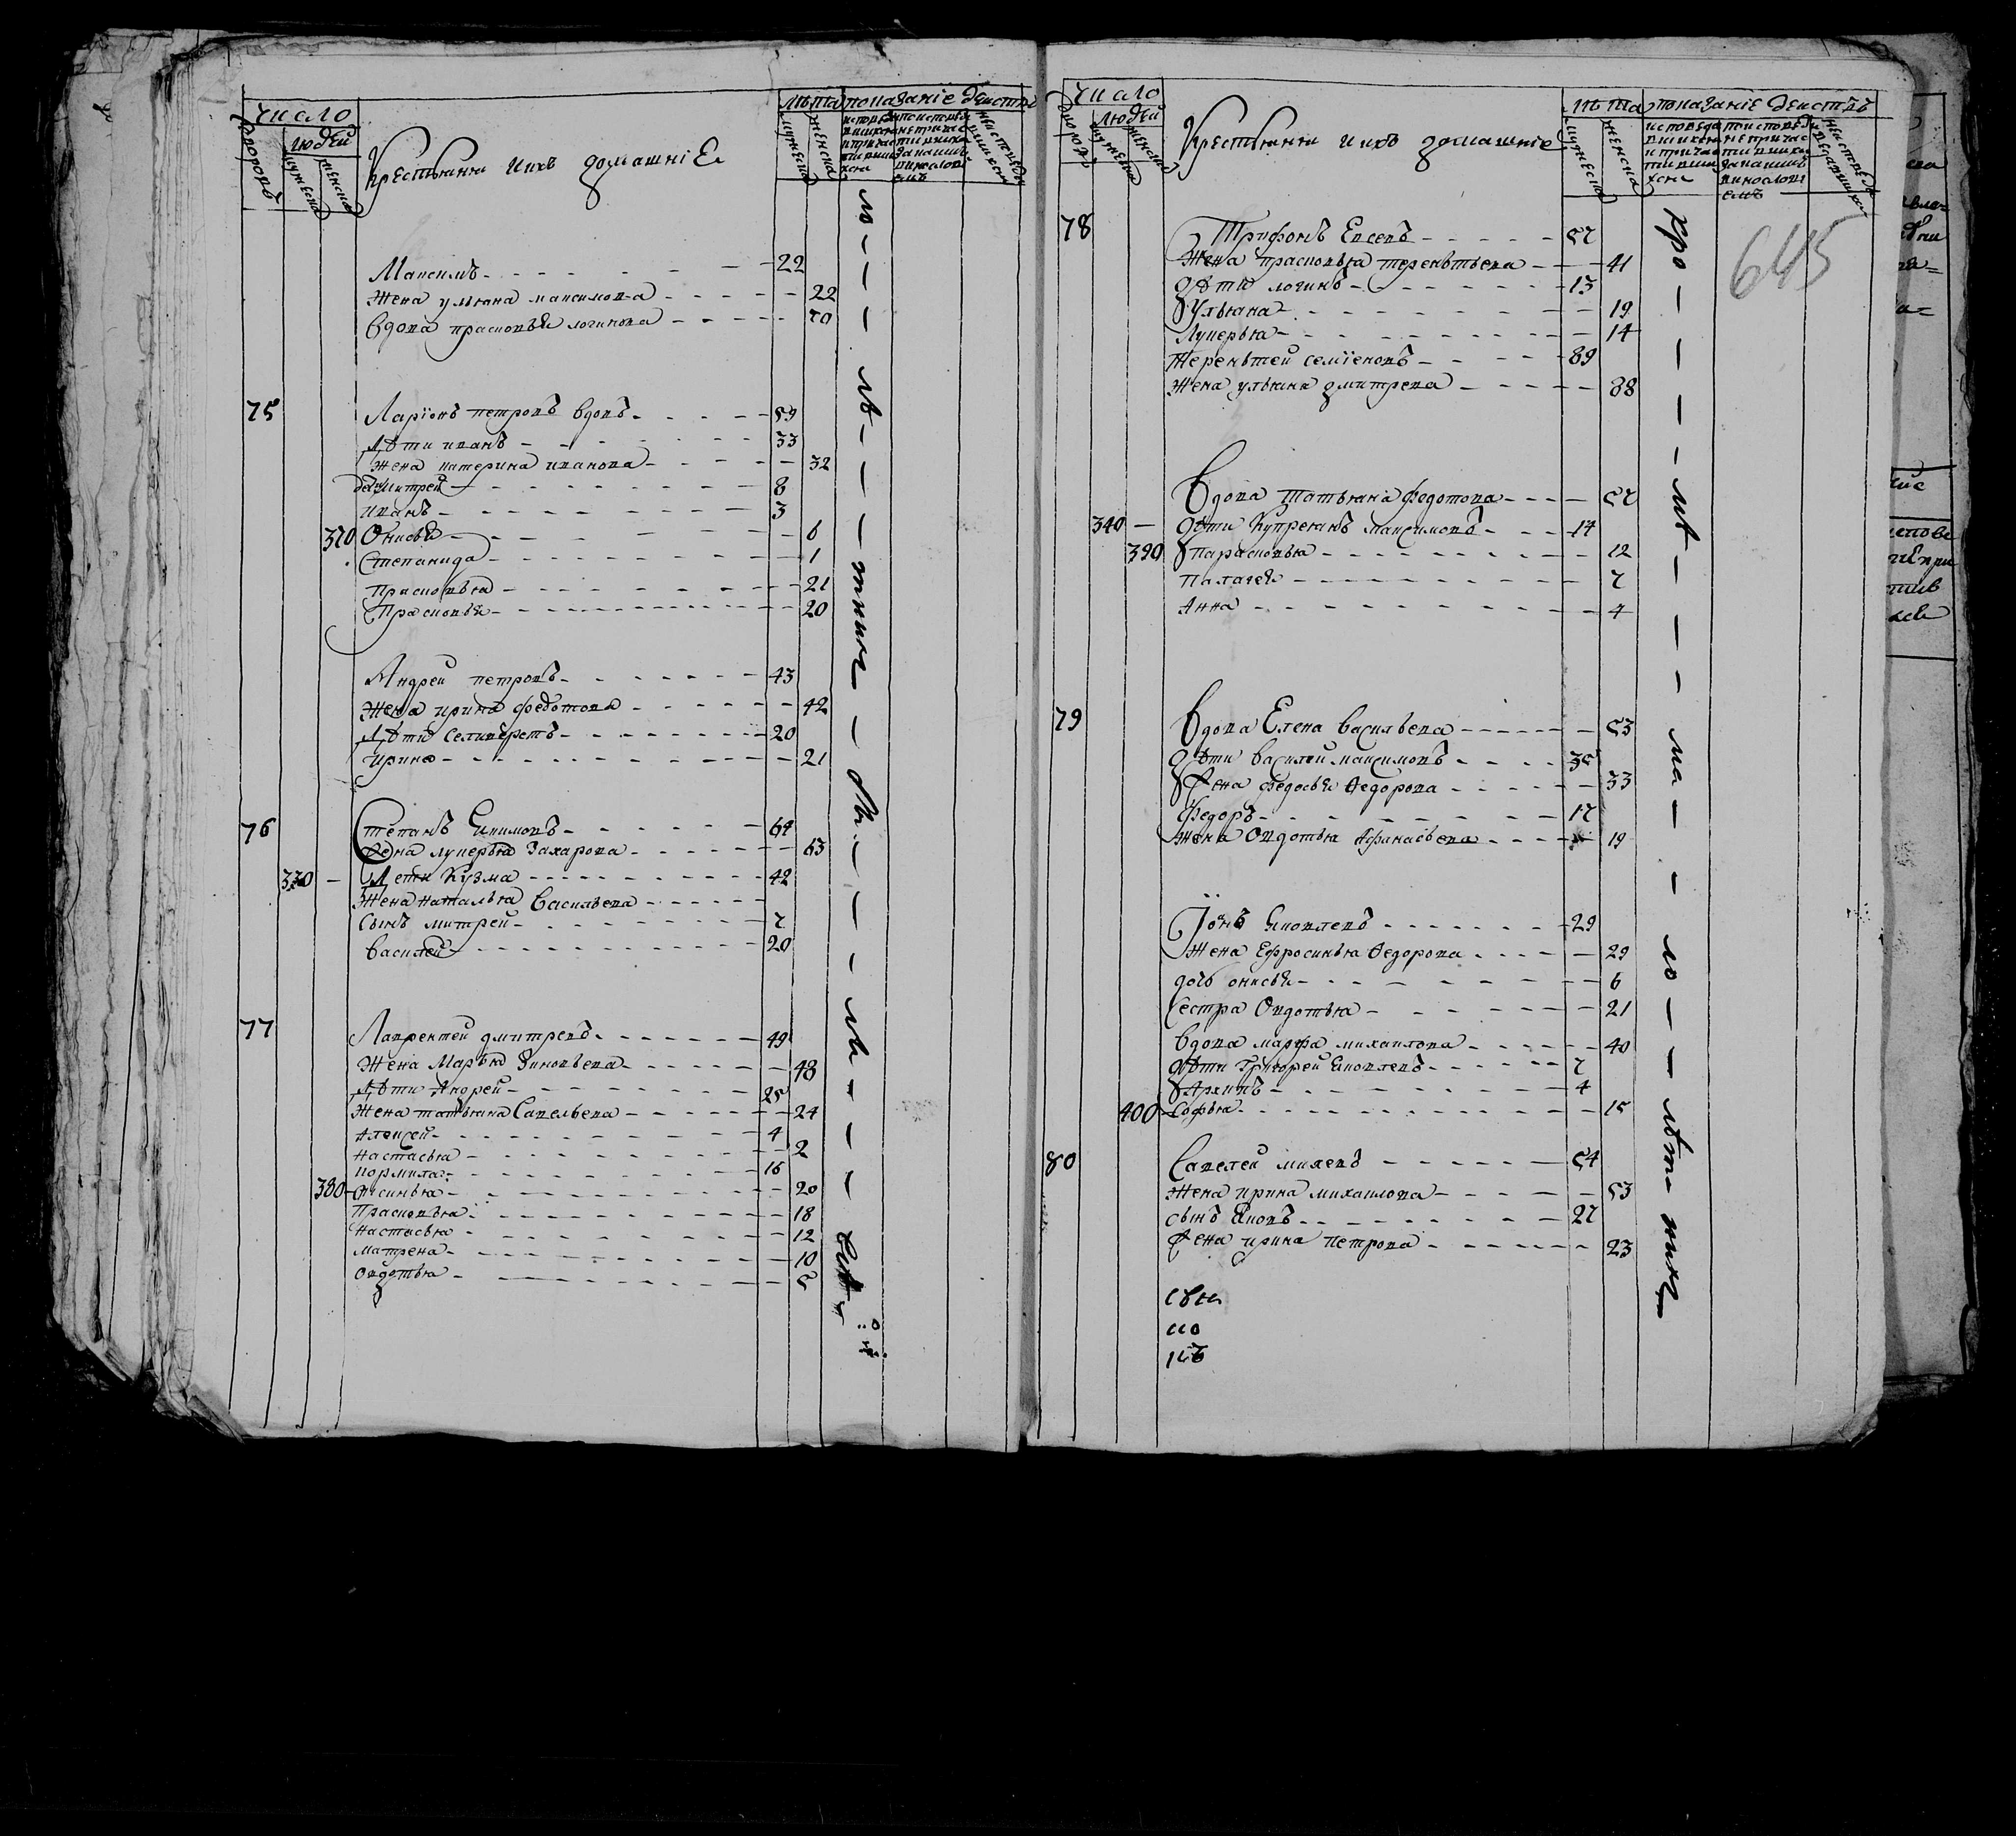 число
людей
дворовъ
мужеска
женска
Крестьяня ихъ домашнiе
лѣта
мужеска
женска
показанiе действъ
Максимъ 22
жена ульяна максимова 22
вдова прасковья логинова 70
75
Ларiонъ петровъ вдовъ 59
дѣти иванъ 33
жена катерина иванова 32
дети митрей 8
иванъ 3
370 Онисья 6
Степанида 1
Прасковья 21
Прасковья 20
Андрей петровъ 43
жена ирина федотова 42
дѣти Селиверстъ 20
ирина 21
76
Степанъ Екимовъ 64
жена лукерья Захарова 63
330 дети Кузма 42
Жена наталья Васильева
Сынъ митрей 7
Василей 20
77
Лаврентей дмитревъ 49
Жена Марья Зиновьева 48
дѣти Андрей 25
жена татьяна Савельева 24
Алексей 4
настасья 2
кормила 16
380 Аксинья 20
Прасковья 18
настасья 12
матрена 10
овдотья 5
число
людей
дворовъ
мужеска
женска
Крестьяня ихъ домашнiе
лѣта
мужеска
женска
показанiе действъ
645
78
Трифонъ Евсевъ 57
жена прасковья терентьева 41
дѣти логинъ 13
Ульяна 19
Лукерья 14
Терентей семiеновъ 89
жена ульяна дмитрева 88
Вдова татьяна федотова 57
340 дѣти Купреянъ максимовъ 14
390 парасковья 12
палагея 7
Анна 4
79
Вдова Елена Васильева 53
дѣти Василей максимовъ 35
жена федосья Федорова 33
федоръ 17
жена Овдотья Афанасьева 19
Iонъ Яковлевъ 29
жена Ефросинья Федорова 29
дочь онисья 6
Сестра Овдотья 21
Вдова марфа михаилова 40
дѣти Григорей Яковлевъ 7
Архипъ 4
400 Софья 15
80
Савелей михевъ 54
жена ирина михаилова 53
сынъ Яковъ 27
жена ирина Петрова 23